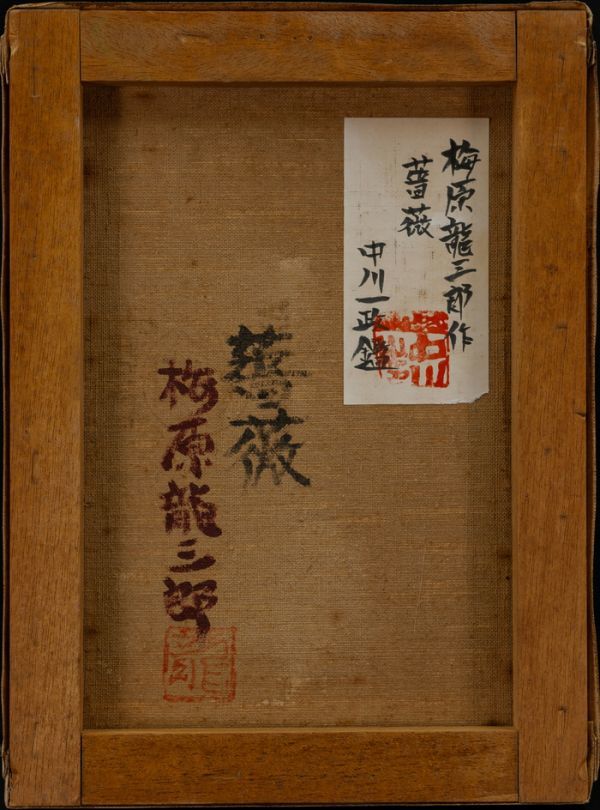 梅原龍三郎作
薔薇
中川一政鑑
薔薇
梅原龍三郎